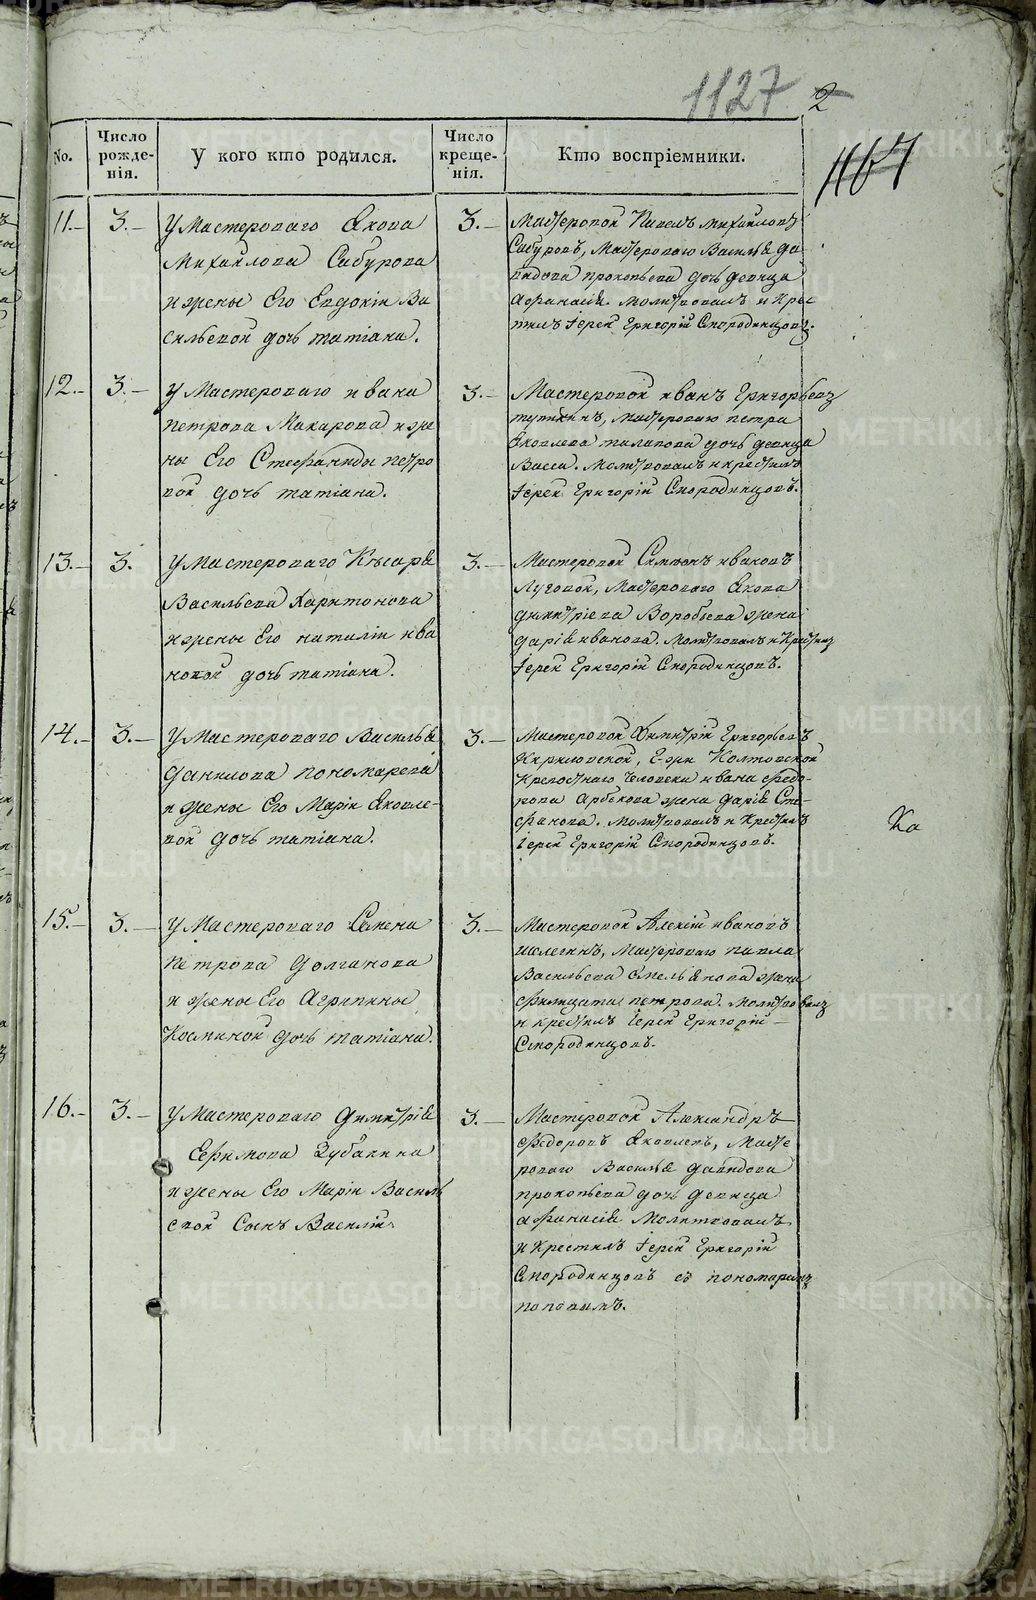 1127 2
1167
No.
Число рожде-нія.
У кого кто родился.
Число креще-нія.
Кто воспріемники.
11.- 3.-
У Мастероваго Якова
Михайлова Сабурова
и жены Его Евдокіи Ва
сильевой дочь татіана.
3.-
Мастеровой Павелъ михайловъ
Сабуровъ, Мастероваго Василья да-
видова прокопьева дочь девица
афанасія. молитвовалъ и Кре-
тилъ Іерей Григорій Смородинцовъ.
12.- 3.-
У Мастероваго ивана
петрова Макарова и же
ны Его Стефаниды петро
вой дочь татіана.
3.-
Мастеровой иванъ Григорьевъ
Мастероваго петра
Яковлева дочь девица
Васса. Молитвовалъ и крестилъ
Іерей Григорій Смородинцовъ.
13.- 3.
У Мастероваго Кесаря
Васильева Харитонова
и жены Его наталіи ива
новой дочь татіана.
3.-
Мастеровой Симеонъ ивановъ
Луговой, Мастероваго Якова
димитріева Воробьева жена
дарія иванова. Молитвовалъ и Крестилъ
Іерей Григорій Смородинцовъ.
14.- 3.-
У Мастероваго Василья
данилова пономарева
и жены Его Маріи Яковле-
вой дочь татіана.
3.-
Мастеровой Димитрій Григорьевъ
Кириловской,
Крепостнаго Человека ивана федо-
рова жена дарія Сте-
фанова. Молитвовалъ и Крестилъ
Іерей Григорій Смородинцовъ.
Ка
15.- 3.-
У Мастероваго Семена
Петрова Долганова
и жены Его Агрипины
Косминой дочь татіана.
3.-
Мастеровой Алексій ивановъ
Мастероваго павла
Васильева Емельянова жена
филицата петрова. Молитвовалъ
и крестилъ Іерей Григорій
Смородинцовъ.
16.- 3.-
У Мастероваго Димитрія
Ефимова Зубакина
и жены Его Маріи Василь
евой Сынъ Василій.
3.-
Мастеровой Александръ
федоровъ Яковлевъ, Масте
роваго Василья давидова
прокопьева дочь девица
афанасія Молитвовалъ
и Крестилъ Іерей Григорій
Смородинцовъ съ пономаремъ
поповымъ.
METRIKI.GASO-URAL.RU